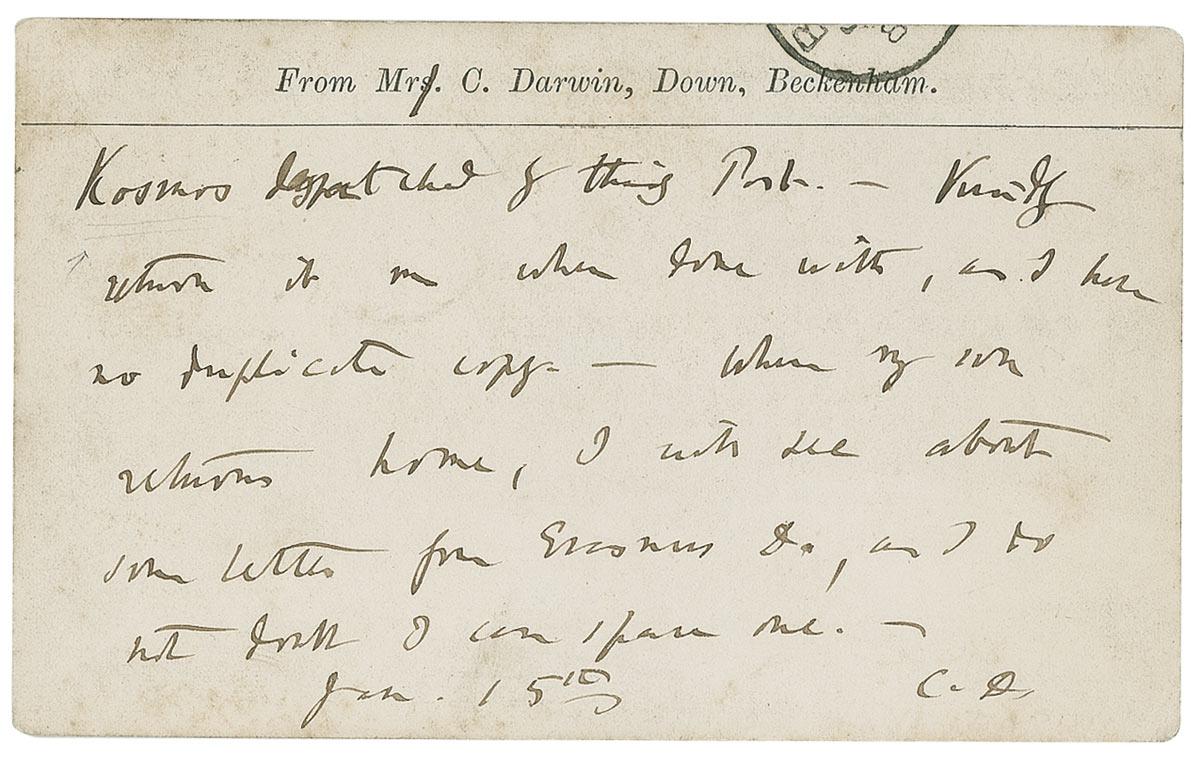 From Mrs. C. Darwin, Down, Beckenham.
Kosmos despatched by this Post. — Kindly
return it me when done with, as I have
no duplicate copy — When my son
returns home, I will see about
some letter from Erasmus D., as I do
not doubt I can spare one. —
Jan. 15th C. D.